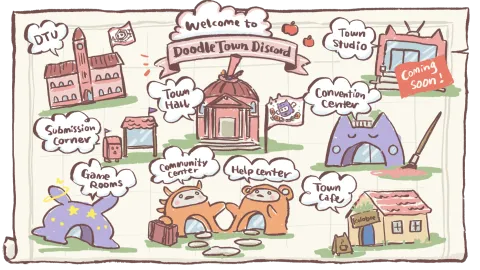 Welcome to
DoodleTown Discord
DTU
Town
Studio
Coming
soon!
Town
Hall
Convention
Center
Submission
Corner
Game
Rooms
Community
Center
Help center
Town
Cafe